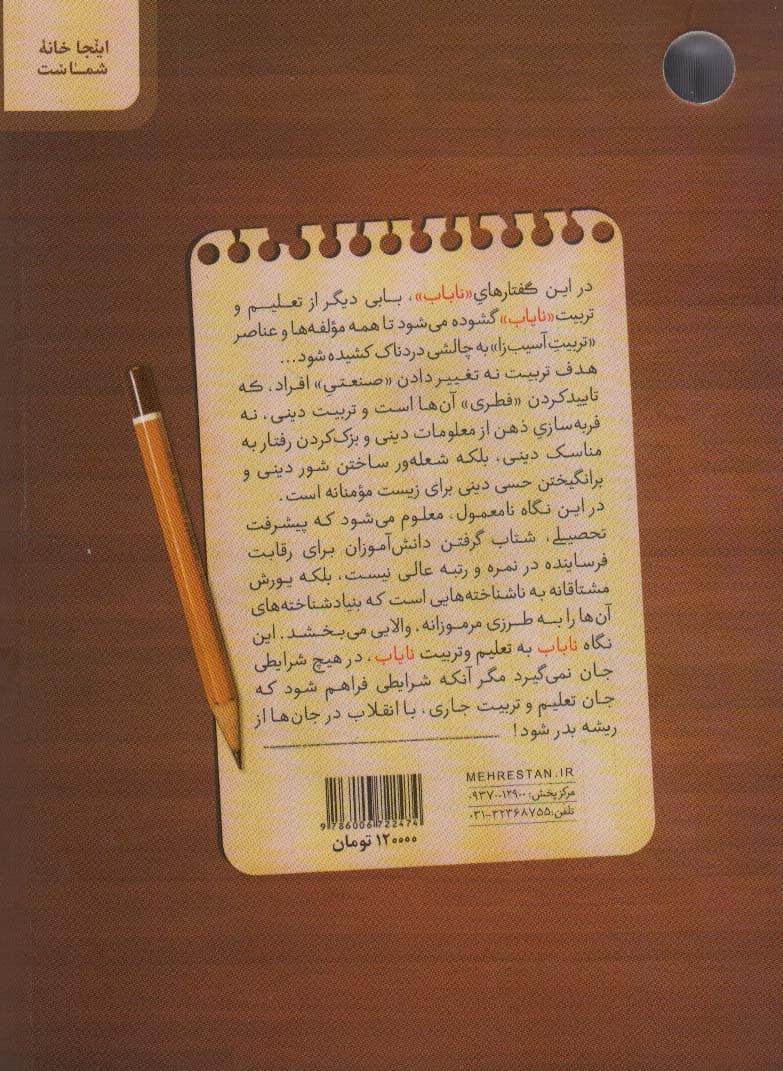 اینجا خانهٔ
شماست
در این گفتارهایِ «نایاب»، بابی دیگر از تعلیم و
تربیت «نایاب» گشوده می‌شود تا همه مؤلفه‌ها و عناصر
«تربیتِ آسیب‌زا» به چالشی دردناک کشیده شود...
هدف تربیت نه تغییر دادن «صنعتیِ» افراد، که
تایید کردن «فطری» آن‌ها است و تربیت دینی، نه
فربه‌سازیِ ذهن از معلومات دینی و بزک‌کردن رفتار به
مناسک دینی، بلکه شعله‌ور ساختن شور دینی و
برانگیختن حسی دینی برای زیست مؤمنانه است.
در این نگاه نامعمول، معلوم می‌شود که پیشرفت
تحصیلی، شتاب گرفتن دانش‌آموزان برای رقابت
فرساینده در نمره و رتبه عالی نیست، بلکه یورش
مشتاقانه به ناشناخته‌هایی است که بنیاد شناخته‌های
آن‌ها را به طرزی مرموزانه، والایی می‌بخشد. این
نگاه نایاب به تعلیم وتربیت نایاب، در هیچ شرایطی
جان نمی‌گیرد مگر آنکه شرایطی فراهم شود که
جان تعلیم و تربیت جاری، با انقلاب در جان‌ها از
ریشه بدر شود!
MEHRESTAN.IR
مرکزپخش: ۰۹۳۷۰۰۱۲۹۰۰
تلفن: ۰۳۱-۳۲۳۶۸۷۵۵
9786006722474
۱۲۰۰۰۰ تومان